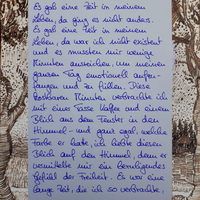 Es gab eine Zeit in meinem
Leben, da ging es nicht anders.
Es gab eine Zeit in meinem
Leben, da war ich nicht existent
und es mussten mir wenige
Minuten ausreichen, um meinen
ganzen Tag emotionell aufzu-
fangen und zu füllen. Diese
kostbaren Minuten verbrachte ich
mit einer Tasse Kaffee und einem
Blick aus dem Fenster in den
Himmel - und ganz egal, welche
Farbe er hatte, ich liebte diesen
Blick auf den Himmel, denn er
vermittelte mir ein beruhigendes
Gefühl der Freiheit. Es war eine
lange Zeit, die ich so verbrachte,